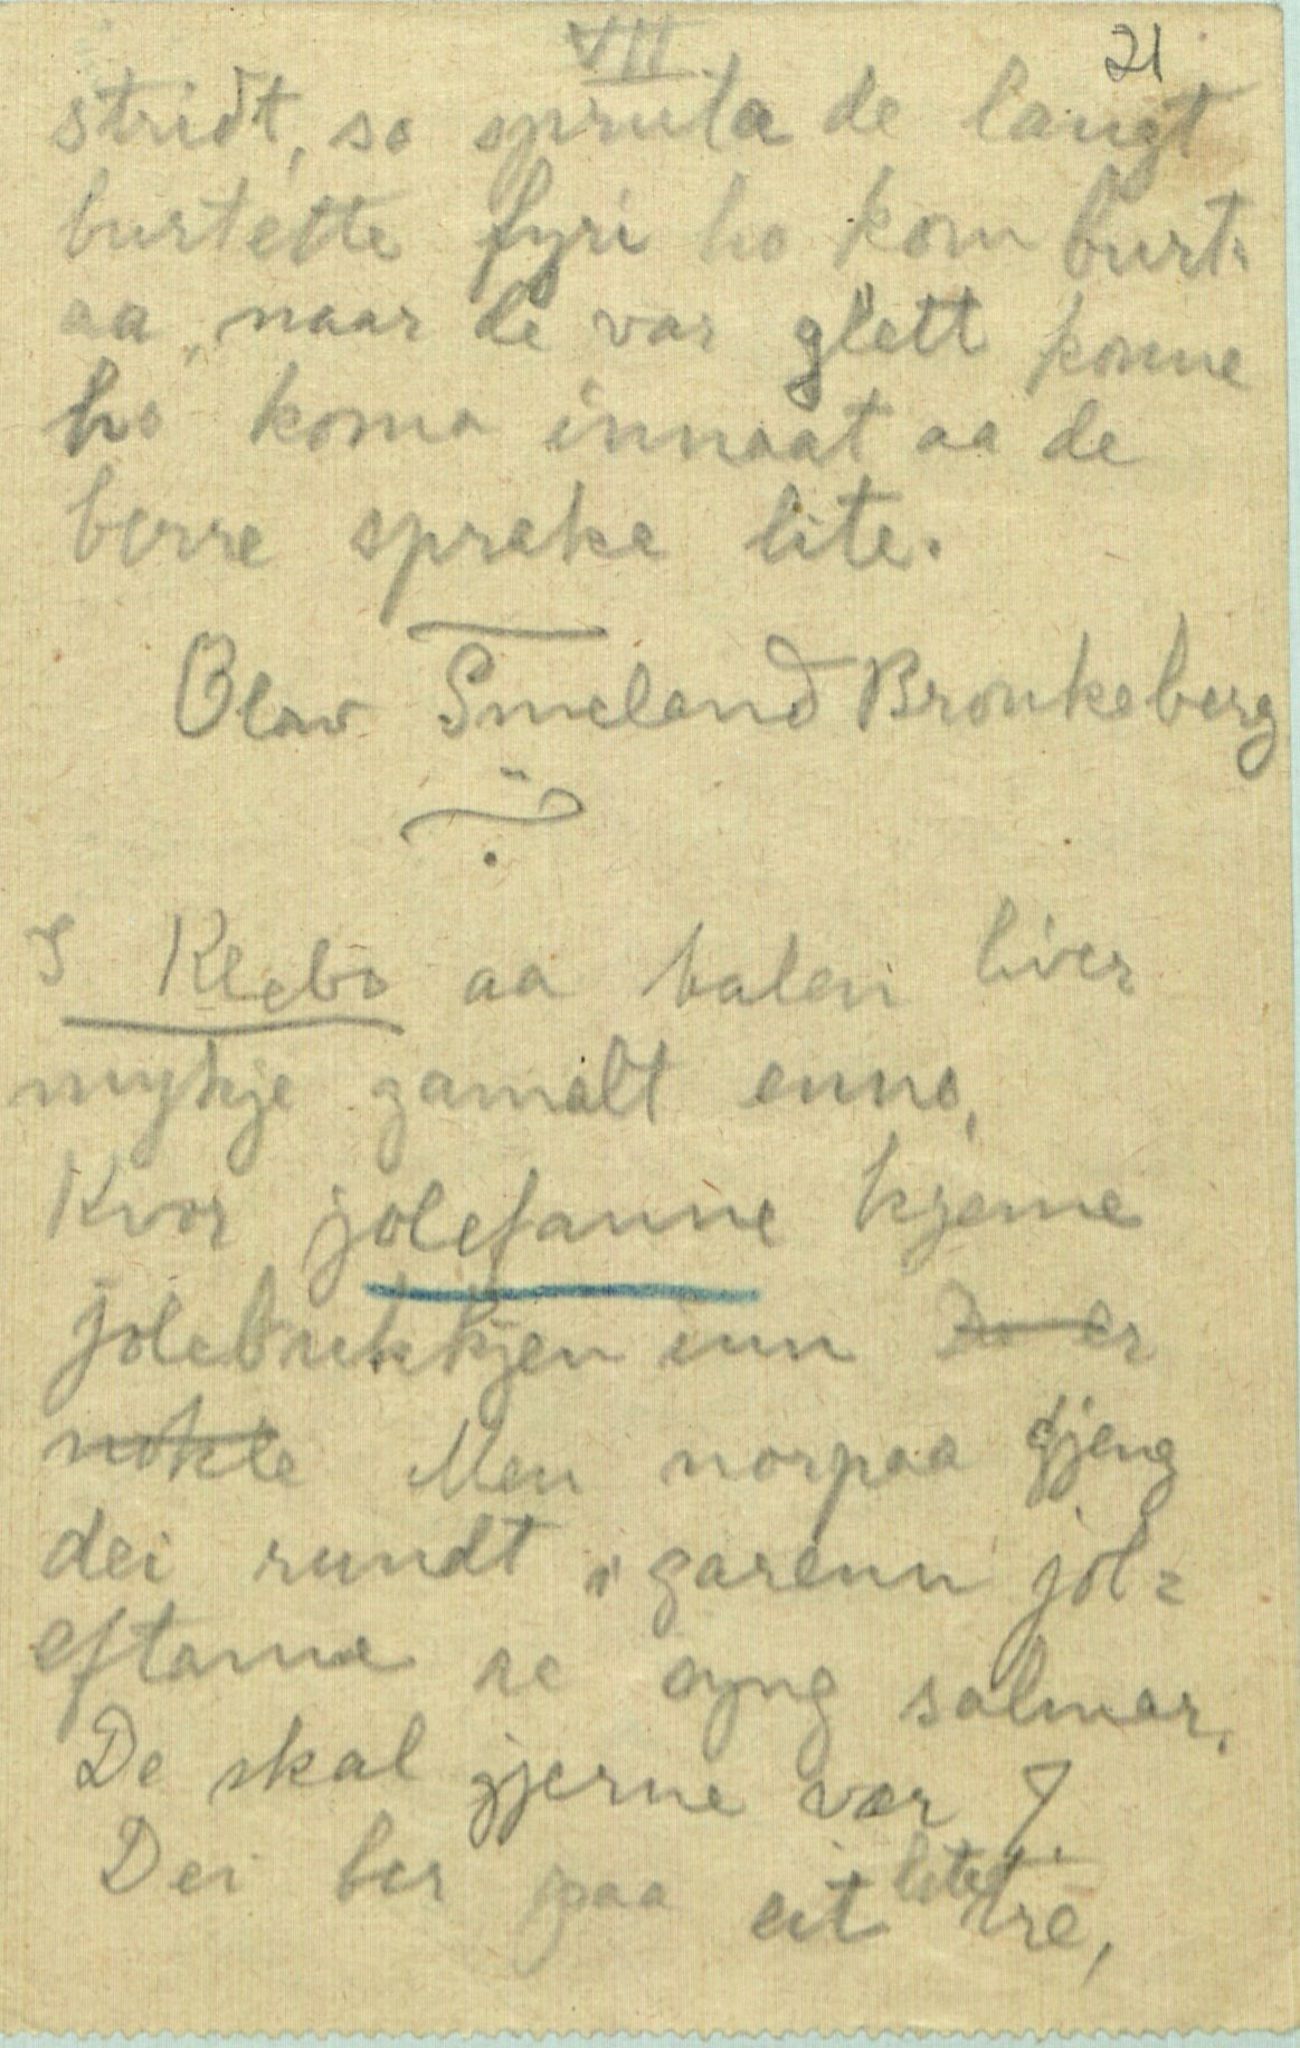 VII 21
stridt, so spruta de langt
burtette fyri ho kom burt-
aa, naar de var glett konne
ho koma innaat aa de
berre sprake lite.
Olav Smeland Bronkeberg
I Klebo aa balen liver
mykje gamalt enno,
Kvor jolefanne kjeme
jolebukkjen inn er
nokle Men norpaa gjeng
dei rundt i garenn jol=
eftanne ae syng salmar.
De skal gjerne vær 7
Dei ber paa eit litet tre,